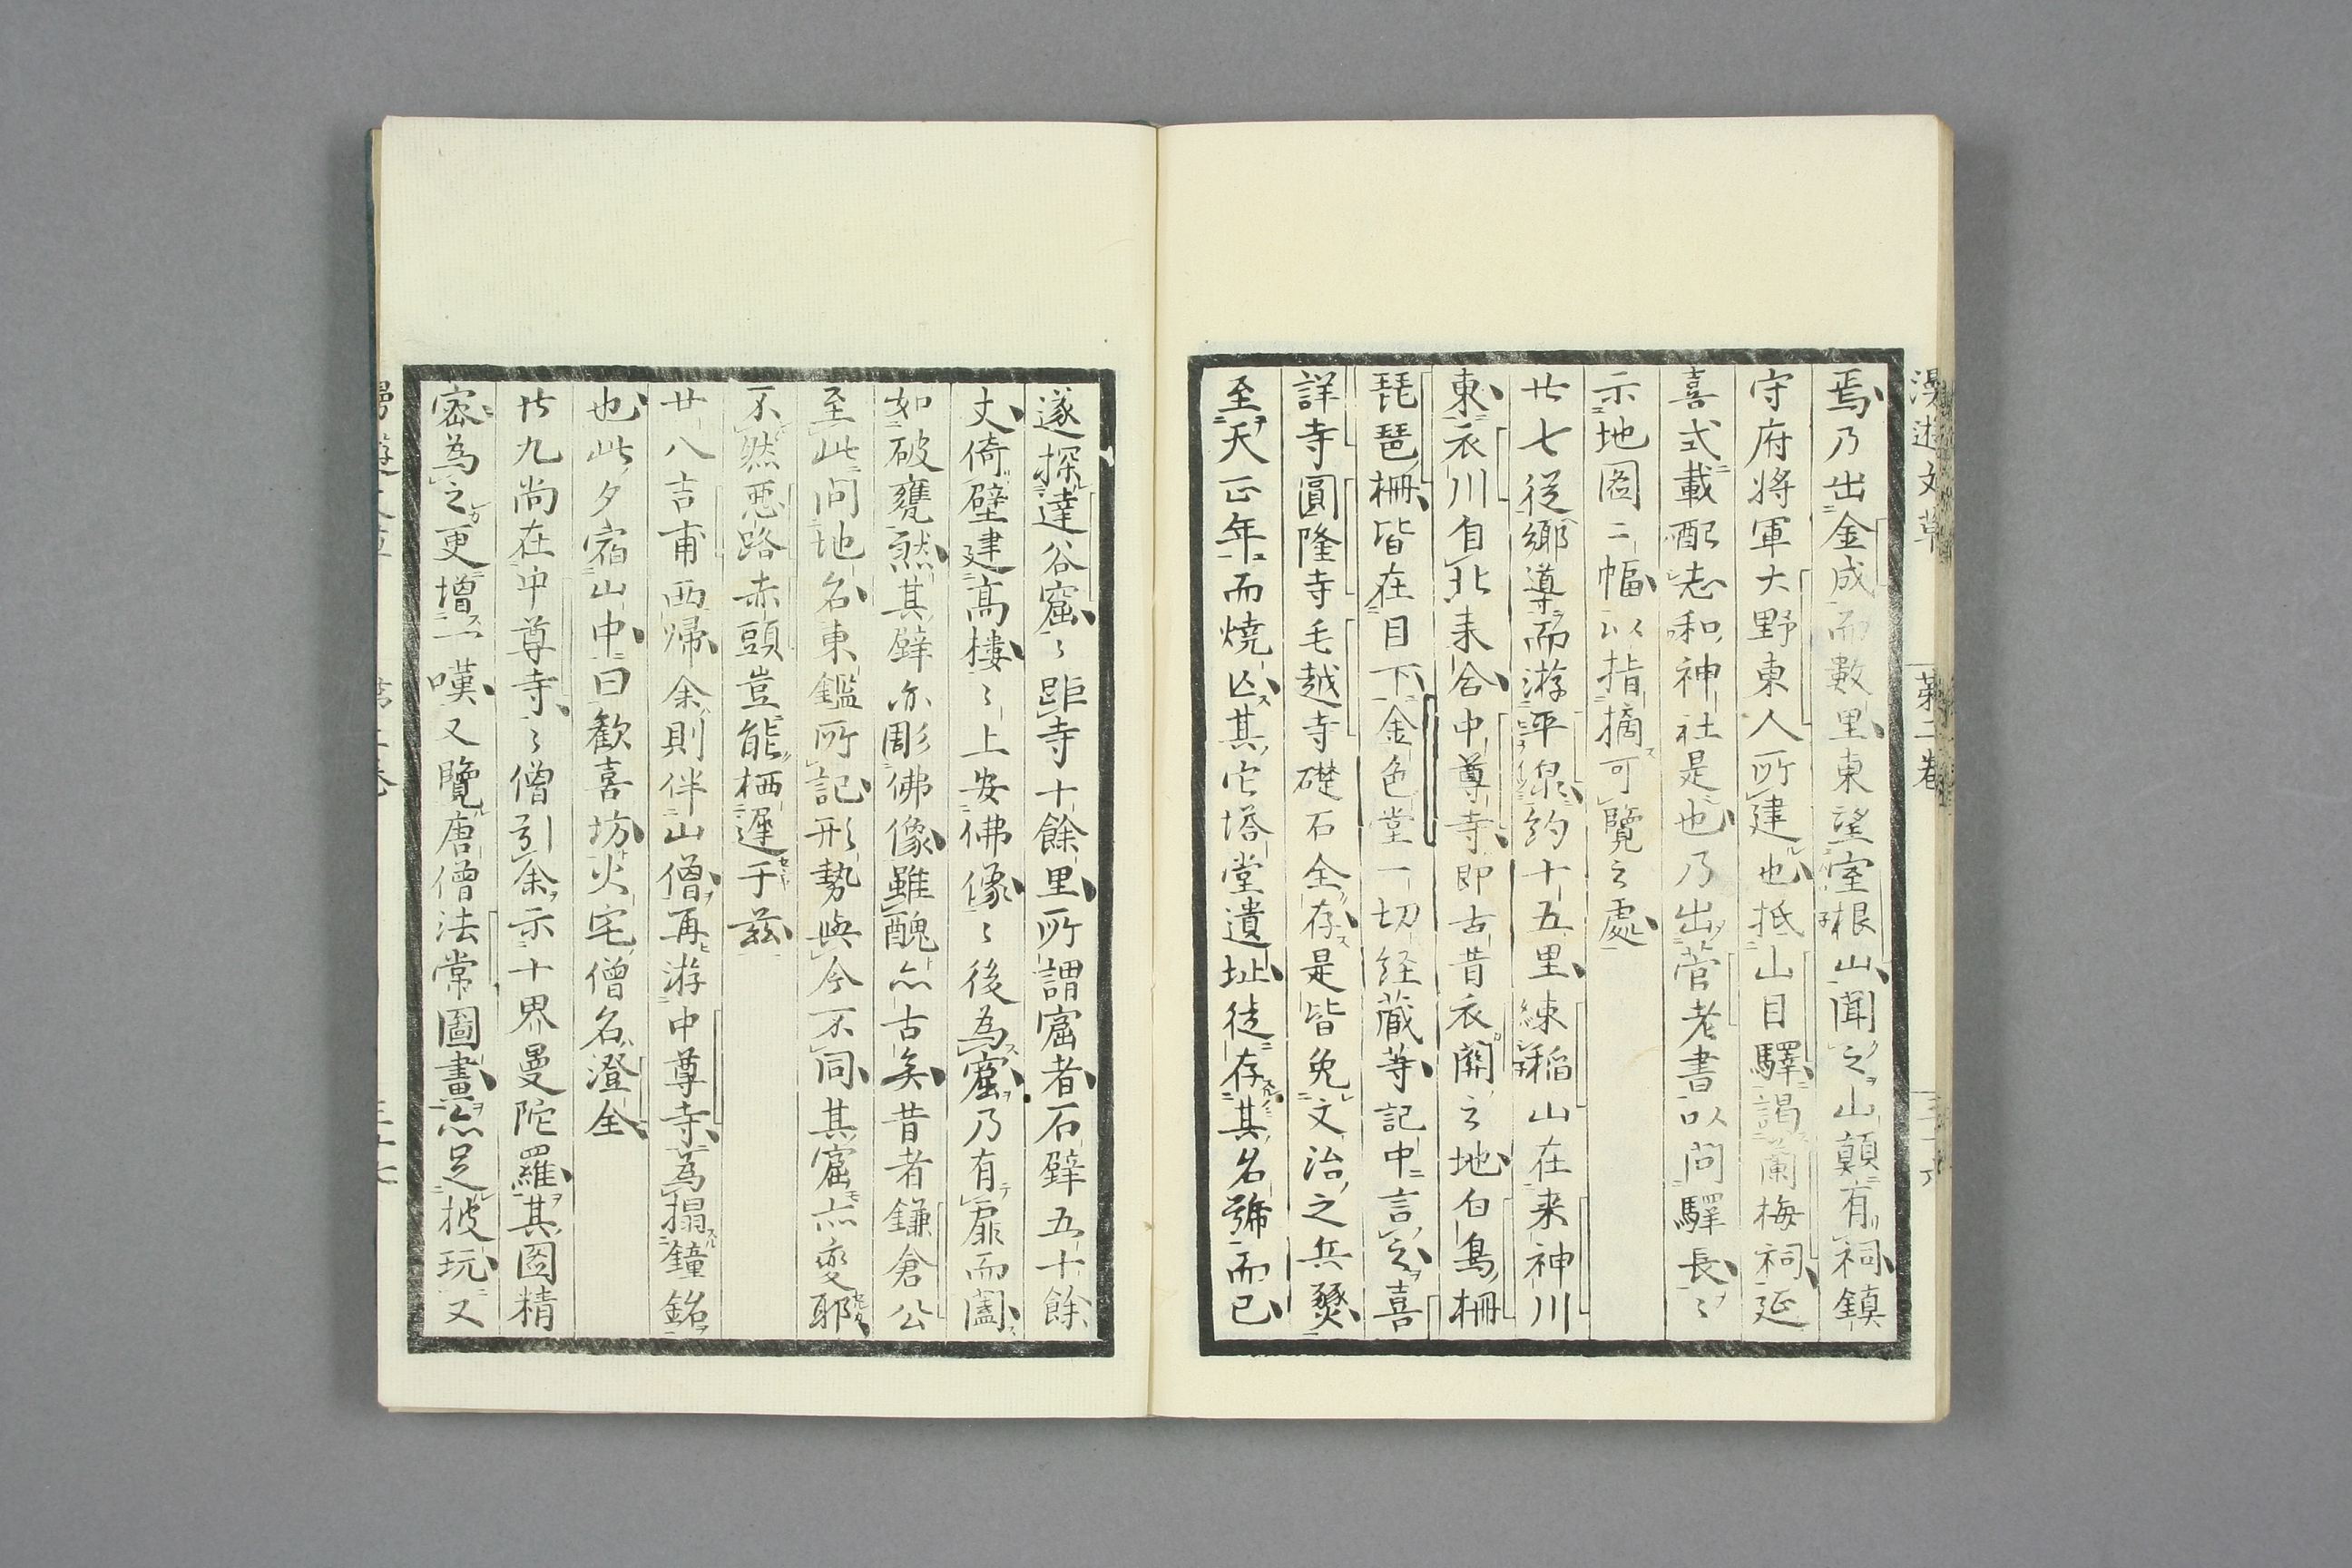 焉乃出金成而數里東望室根山聞之山顛有祠鎮
守府將軍大野東人所建也抵山目驛謁蘭梅祠延
喜式載配志和神社是也乃出菅老書以問驛長〻
示地圖二幅以指摘可覽之處
廿七從鄉導而游平泉約十五里練稻山在来神川
東衣川自北来合中尊寺即古昔衣關之地白鳥柵
琵琶柵皆在目下金色堂一切経蔵等記中言之喜
詳寺圓隆寺毛越寺礎石全存是皆免文治之兵燹
至天正年而燒亾其它塔堂遺址徒存其名號而已
遂探達谷窟〻距寺十餘里所謂窟者石壁五十餘
丈倚壁建高樓〻上安佛像〻後為窟乃有扉而闔
如破甕然其壁亦彫佛像雖醜亦古矣昔者鎌倉公
至此問地名東鑑所記形勢與今不同其窟亦變耶
不然惡路赤頭豈能栖遲于茲
廿八吉甫西帰余則伴山僧再游中尊寺為搨鐘銘
也此夕宿山中曰歓喜坊火宅僧名澄全
廿九尚在中尊寺〻僧引余示十界曼陀羅其圖精
密為之更增一嘆又覽唐僧法常圖畫亦足披玩又
漫遊文草
第二巻